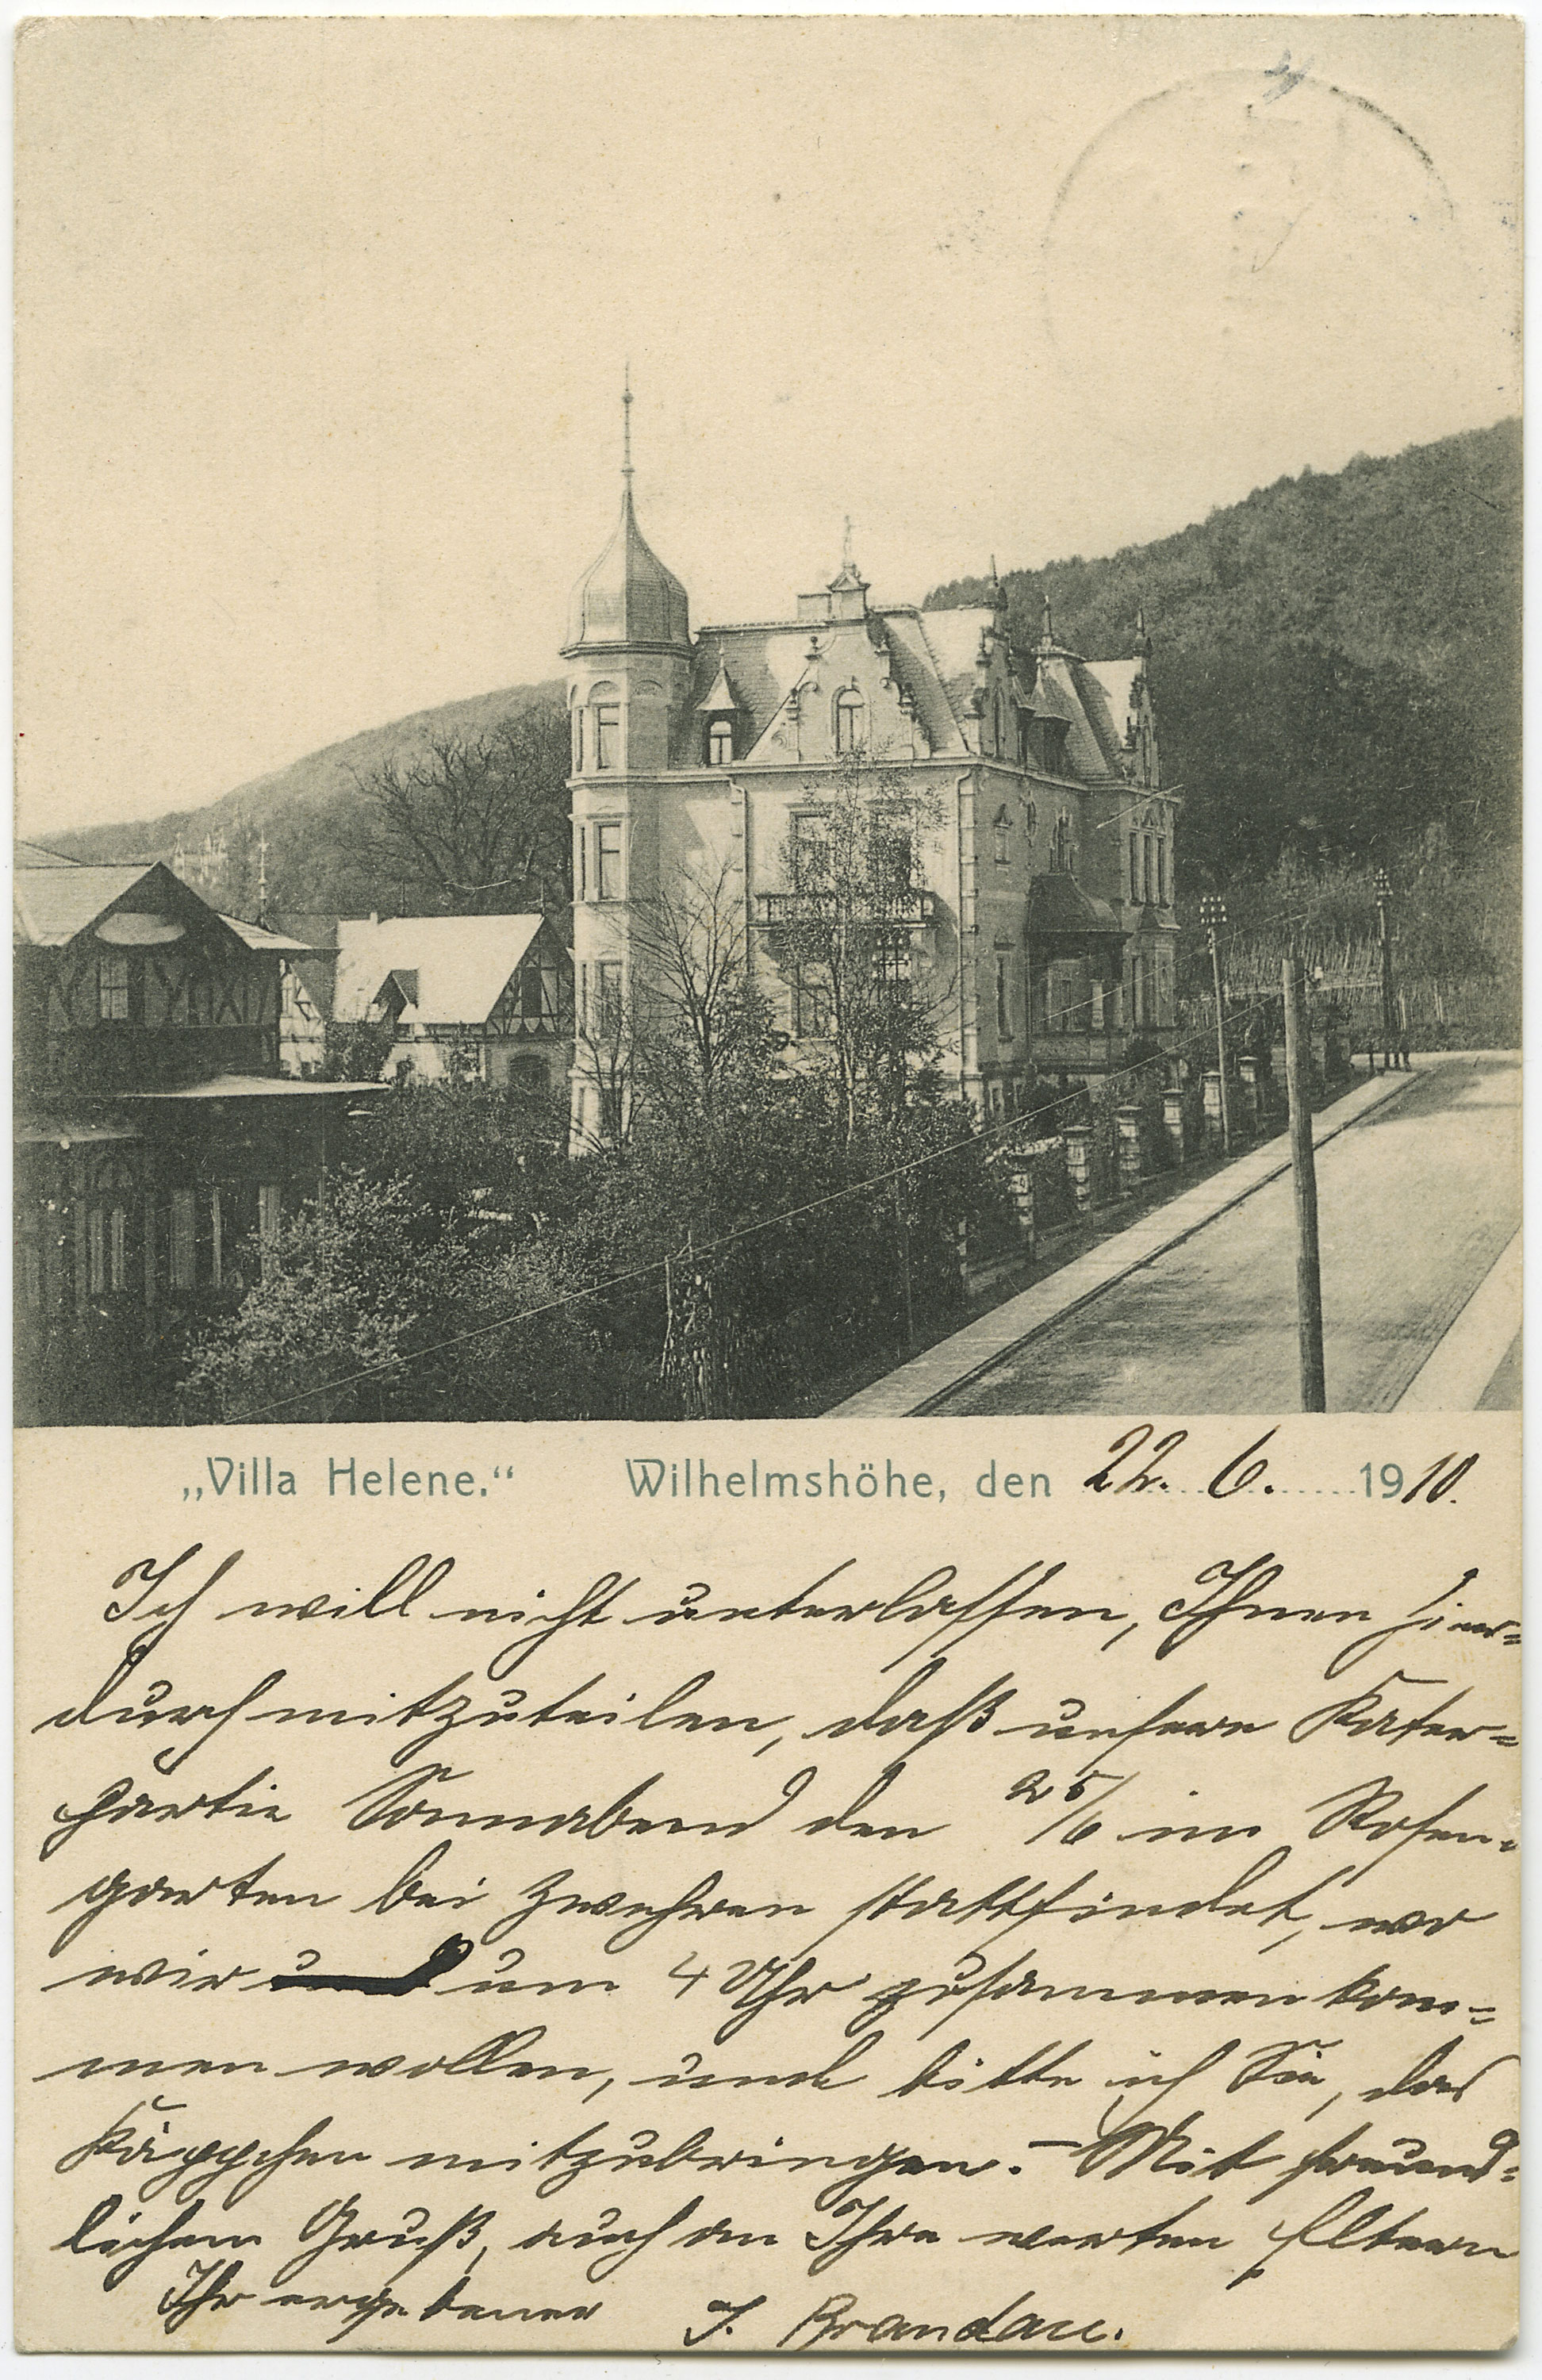 „Villa Helene.“ Wilhelmshöhe, den 22. 6. 1910.
Ich will nicht unterlassen, Ihnen hier=
durch mitzuteilen, daß unsere Kater=
partie Sonnabend den 25/6 im Rosen=
garten bei Zwehren stattfindet, wo
wir um 4 Uhr zusammen kom=
men wollen, und bitte ich Sie, das
Käppchen mitzubringen. – Mit freund=
lichem Gruß, auch an Ihre werten Eltern
Ihr ergebener J. Brandau.